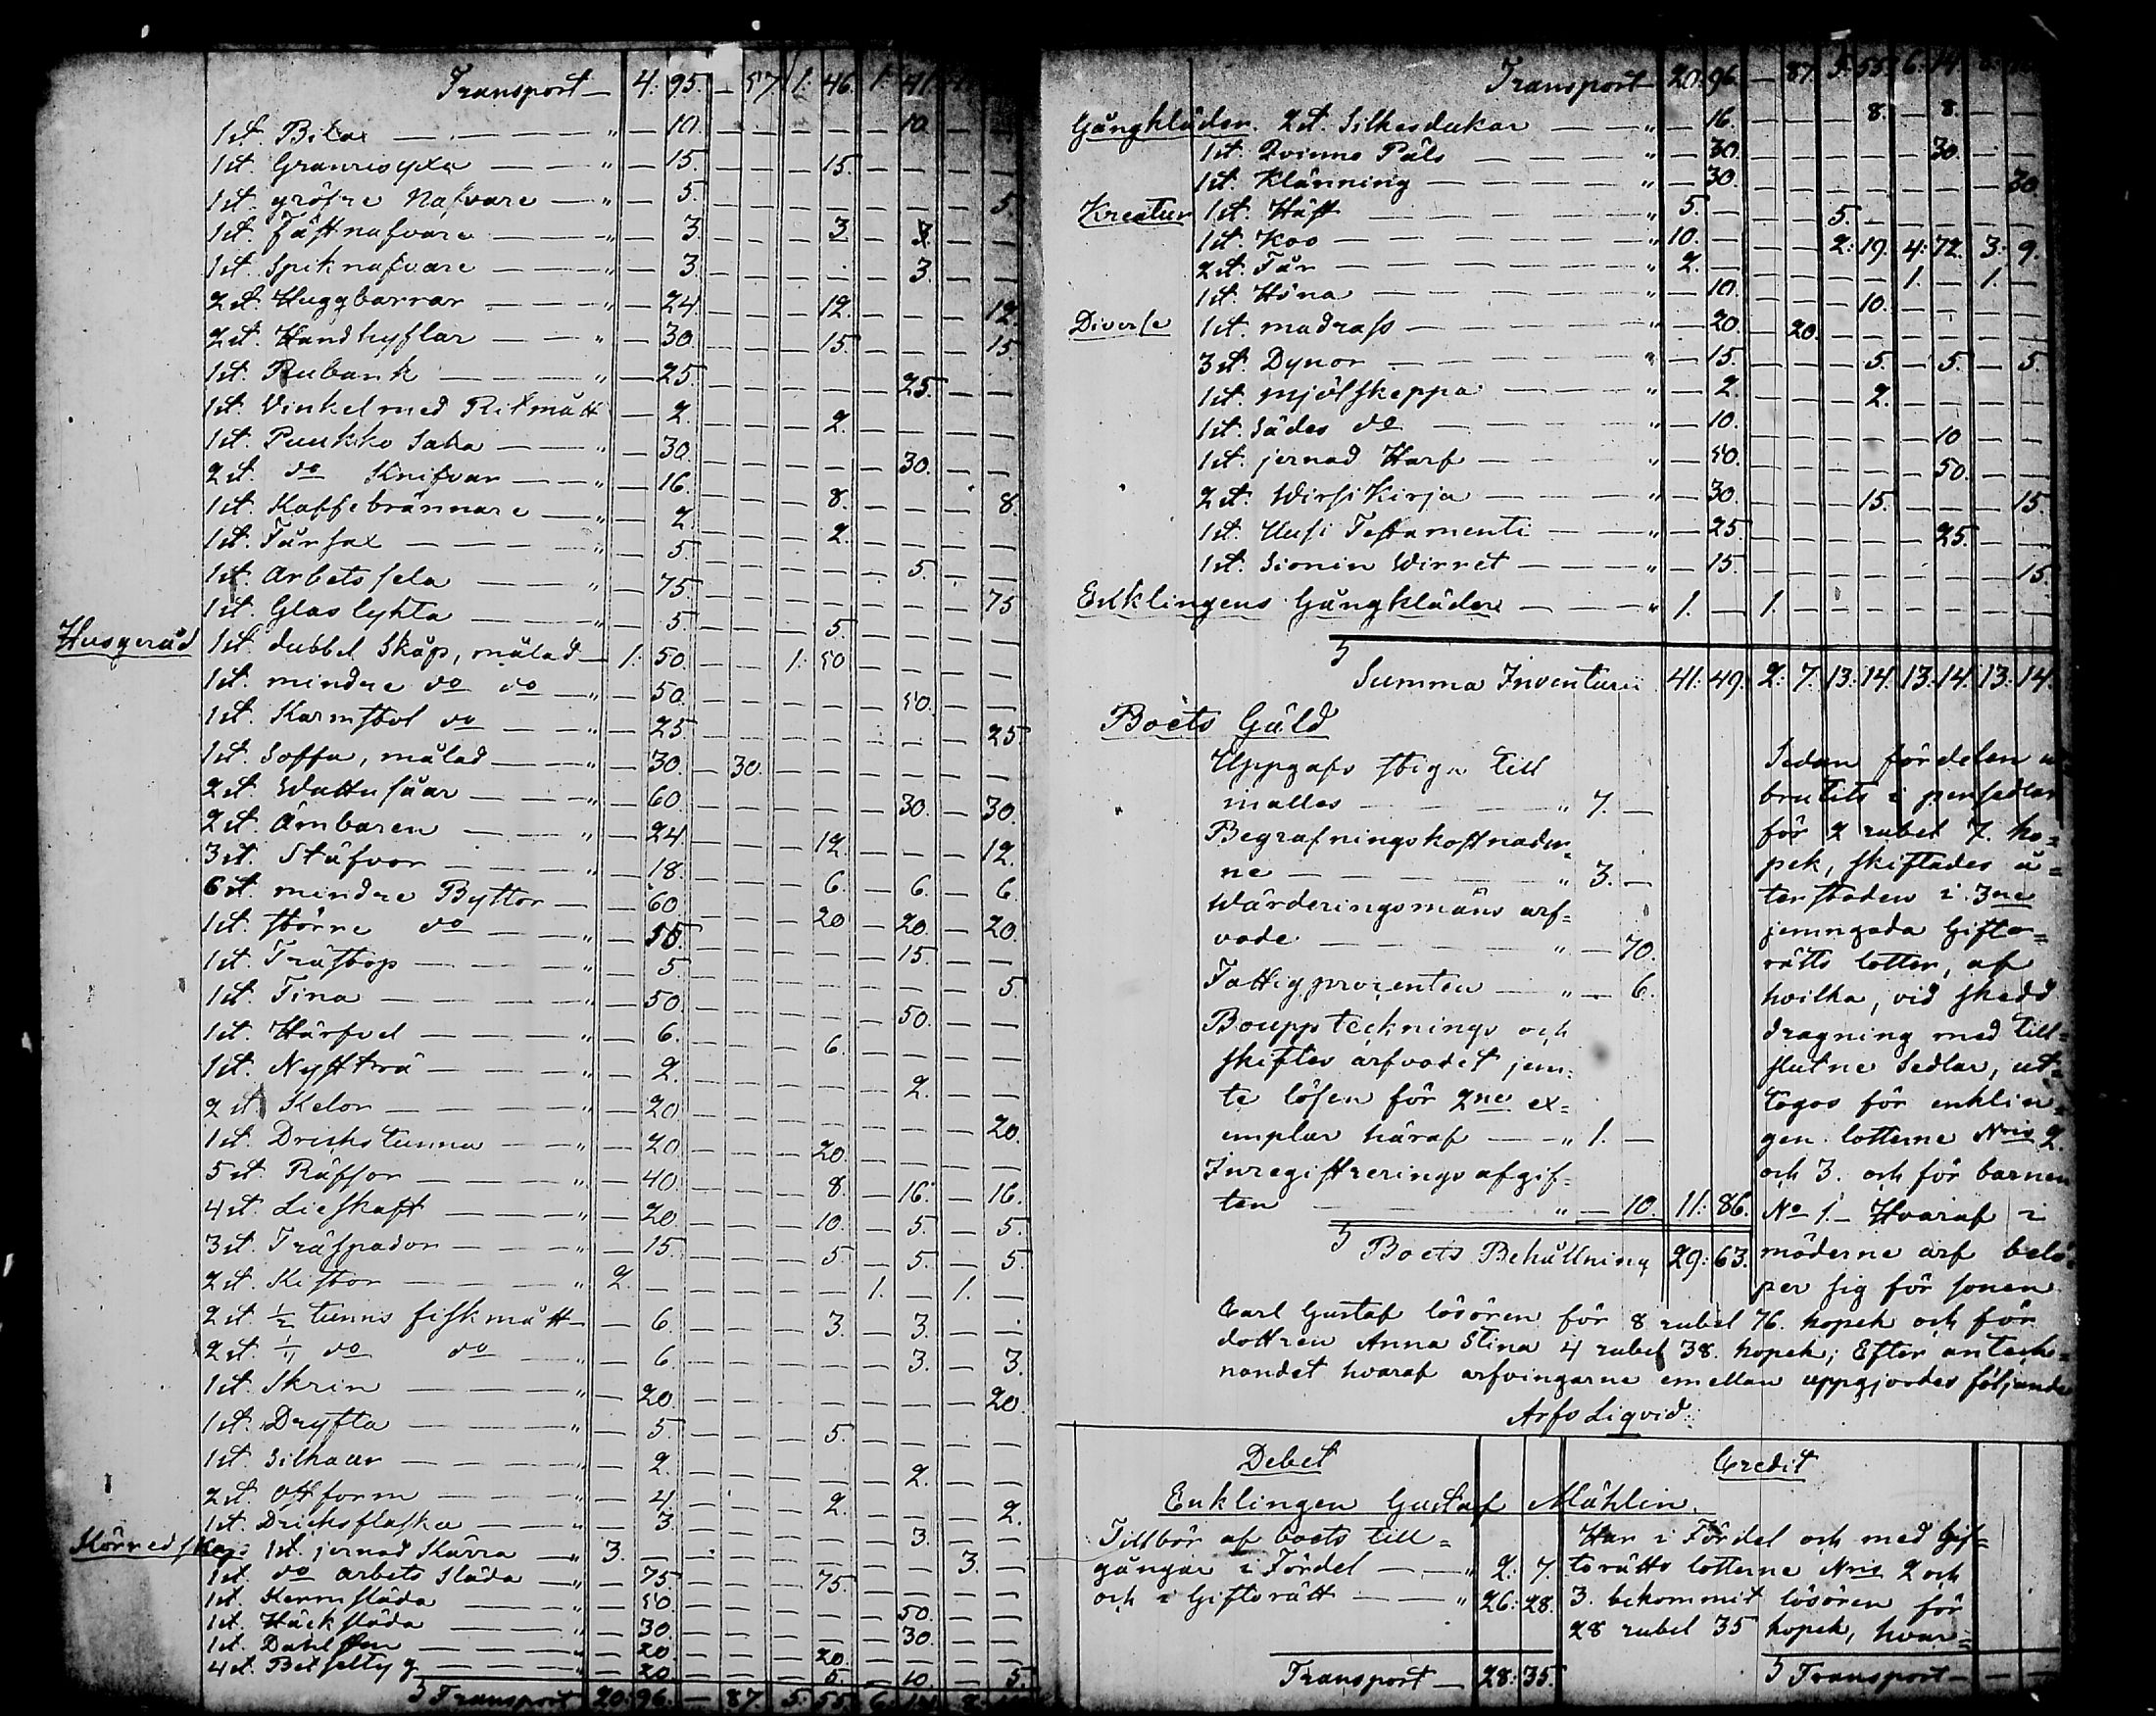 Transport — 4: 95. — 57 1: 46. 1: 41.
1 st. Bila — — — — " — 10. — — — — — 10. — —
1 st. Granrisyxa — — " — 15. — — — 15. — — — —
1 st. gröfre Nafvare — " — 5. — — — — — — — 5.
1 st. Fästnafvare — — " — 3. — — — 3. — 3. — —
1 st. Spiknafvare — — " — 3. — — — — — 3. — —
2 st. Huggbarrar — — " — 24. — — — 12. — — — 12.
2 st. Handhyflar — — " — 30. — — — 15. — — — 15.
1 st. Rubank — — — " — 25. — — — — — 25. — —
1 st. Vinkel med Ritmått — 2. — — — 2. — — — —
1 st. Puukko Saha — — " — 30. — — — — — 30. — —
2 st. do Knifvar — — " — 16. — — — 8. — — — 8.
1 st. Kaffebrännare — " — 2. — — — 2. — — — —
1 st. Fårsax — — — " — 5. — — — — — 5. — —
1 st. Arbetssela — — " — 75. — — — — — — — 75
1 st. Glaslykta — — " — 5. — — — 5. — — — —
Husgeråd 1 st. dubbel Skåp, målad — 1: 50. — — 1: 50 — — — —
1 st. mindre do do — " — 50. — — — — — 50. — —
1 st. Karmstol do — — " — 25 — — — — — — — 25.
1 st. Soffa, målad — — " — 30. — 30. — — — — — —
2 st. Wattusåar — — " — 60. — — — — — 30. — 30.
2 st. Ämbaren — — " — 24. — — — 12. — — — 12.
3 st. Stäfvor — — — " — 18. — — — 6. — 6. — 6.
6 st. mindre Byttor — — 60 — — — 20 — 20. — 20.
1 st. större do — — " — 15. — — — — — 15. — —
1 st. Trästop — — — " — 5. — — — — — — — 5.
1 st. Tina — — — — " — 50. — — — — — 50. — —
1 st. Härfvel — — — " — 6. — — — 6. — — — —
1 st. Nystträ — — — " — 2. — — — — — 2. — —
2 st. Kelor — — — — " — 20. — — — — — — — 20.
1 st. Drickstunna — — " — 20 — — — 20. — — — —
5 st. Räfsor — — — " — 40. — — — 8. — 16. — 16.
4 st. Lieskaft — — — " — 20. — — — 10. — 5. — 5.
3 st. Träspador — — " — 15. — — — 5. — 5. — 5.
2 st. Kistor — — — " 2. — — — — — 1. — 1. —
2 st. ½ tunns fiskmått — — 6. — — — 3. — 3. — —
2 st. do do — " — 6. — — — — — 3. — 3.
1 st. Skrin — — — " — 20. — — — — — — — 20.
1 st. Dryfta — — — " — 5. — — — 5. — — — —
1 st. Silkaar — — — " — 2. — — — — — 2. — —
2 st. Ostform — — — " — 4. — — — 2. — — — 2.
1 st. Dricksflaska — — " — 3. — — — — — 3. — —
Körredskap 1 st. jernad Kärra — " 3. — — — — — — — 3. —
1 st. do arbets Släda — " — 75. — — — 75. — — — —
1 st. Kernsläda — — " — 50. — — — — — 50. — —
1 st. Häcksläda — — " — 30. — — — — — 30. — —
1 st. — — " — 20 — — — 20. — — — —
4 st. Betseltyg — — " — 20. — — — 5. — 10. — 5.
Transport 20: 96. — 87. 5: 55. 6: 14.
Transport — 20: 96. — 87. 5: 55. 6: 14.
Gångkläder. 2 st. Silkesdukar — — " — 16. — — — 8. — 8. — —
1 st. Qvinno Päls — — — " — 30. — — — — — 30. — —
1 st. Klänning — — — " — 30. — — — — — — — 30.
Kreatur 1 st. Häst — — — — " 5. — — — 5. — — — — —
1 st. Koo — — — — " 10. — — — 2: 19. 4: 72. 3: 9.
2 st. Får — — — — " 2. — — — — — 1. — 1. —
1 st. Höna — — — — " — 10. — — — 10. — — — —
Diverse 1 st. madrass — — — " — 20. — 20. — — — — — —
3 st. Dynor — — — " — 15. — — — 5. — 5. — 5.
1 st. mjölskeppa — — — " — 2. — — — 2. — — — —
1 st. Sädes do — — — " — 10. — — — — — 10 — —
1 st. jernad Harf — — — " — 50. — — — — — 50. — —
2 st. Wirsikirja — — — " — 30. — — — 15. — — — 15.
1 st. Uusi Testamenti — — " — 25. — — — — — 25. — —
1 st. Sionin Wirret — — — " — 15. — — — — — — — 15.
Enklingens Gångkläder — — — " 1. — 1. — — — — — — —
Summa Inventarii 41: 49. 2: 7. 13: 14. 13: 14. 13: 14.
Boets Gäld
Uppgafs stiga till
malles — — — " 7. —
Begrafningskostnader=
ne — — — — " 3. —
Wärderingsmäns arf=
vode — — — — " — 70.
Fattigprocenten — " — 6.
Boupptecknings och
skiftes arfvodet jem=
te lösen för 2ne ex=
emplar häraf — — " 1. —
Inregistreringsafgif=
ten — — — — " — 10. 11: 86.
Boets Behållning 29: 63.
Sedan fördelen
brutits i persedlar
för 2 rubel 7. ko=
pek, skiftades å=
terstoden i 3ne
jemngoda Gifto=
rätts lotter, af
hvilka, vid skedd
dragning med till=
slutne Sedlar, ut=
togos för enklin=
gen lotterne Nris 2.
och 3. och för barnen
No 1. — Hvaraf i
möderne arf belö=
per sig för sonen
Carl Gustaf lösören för 8 rubel 76. kopek och för
dottren Anna Stina 4 rubel 38. kopek; Efter anteck=
nandet hvaraf arfvingarne emellan uppgjordes följande
Arfs Liqvid:
Debet
Enklingen Gustaf Mählin.
Tillbör af boets till=
gångar i Fördel — — " 2: 7.
och i Giftorätt — — " 26: 28.
Transport — 28: 35.
Credit
Har i Fördel och med Gif=
torätts lotterne Nris 2 och
3. bekommit lösören för
28 rubel 35 kopek, hvar=
Transport — — —